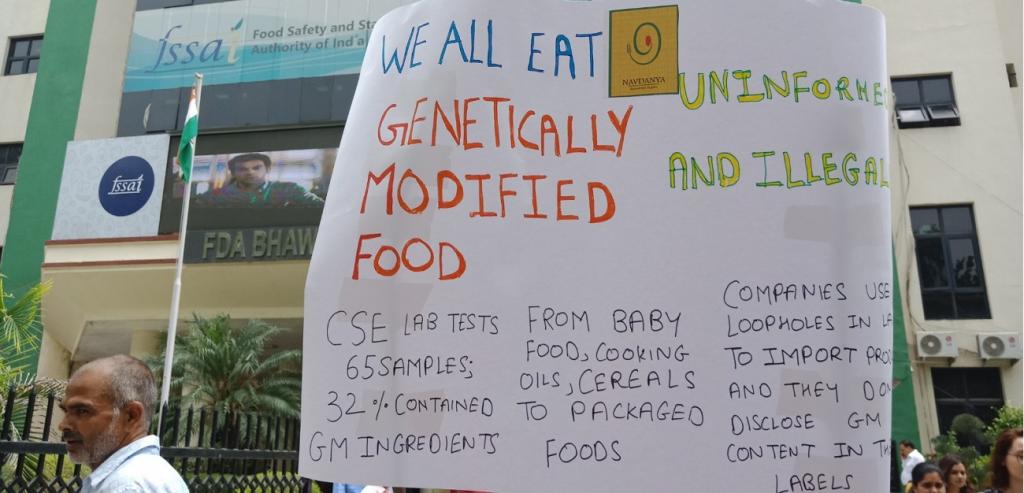 fssai
Food Safety and Sta
Authority of India
fssai
FDA BHAW
WE ALL EAT
NAVDANYA
UNINFORME
AND ILLEGAL
GENETICALLY
MODIFIED
FOOD
CSE LAB TESTS
65 SAMPLES;
32 % CONTAINED
GM INGREDIENTS
FROM BABY
FOOD, COOKING
OILS, CEREALS
TO PACKAGED
FOODS
COMPANIES USE
LOOPHOLES IN LA
TO IMPORT PRO
AND THEY DO
DISCLOSE GM
CONTENT IN TH
LABELS